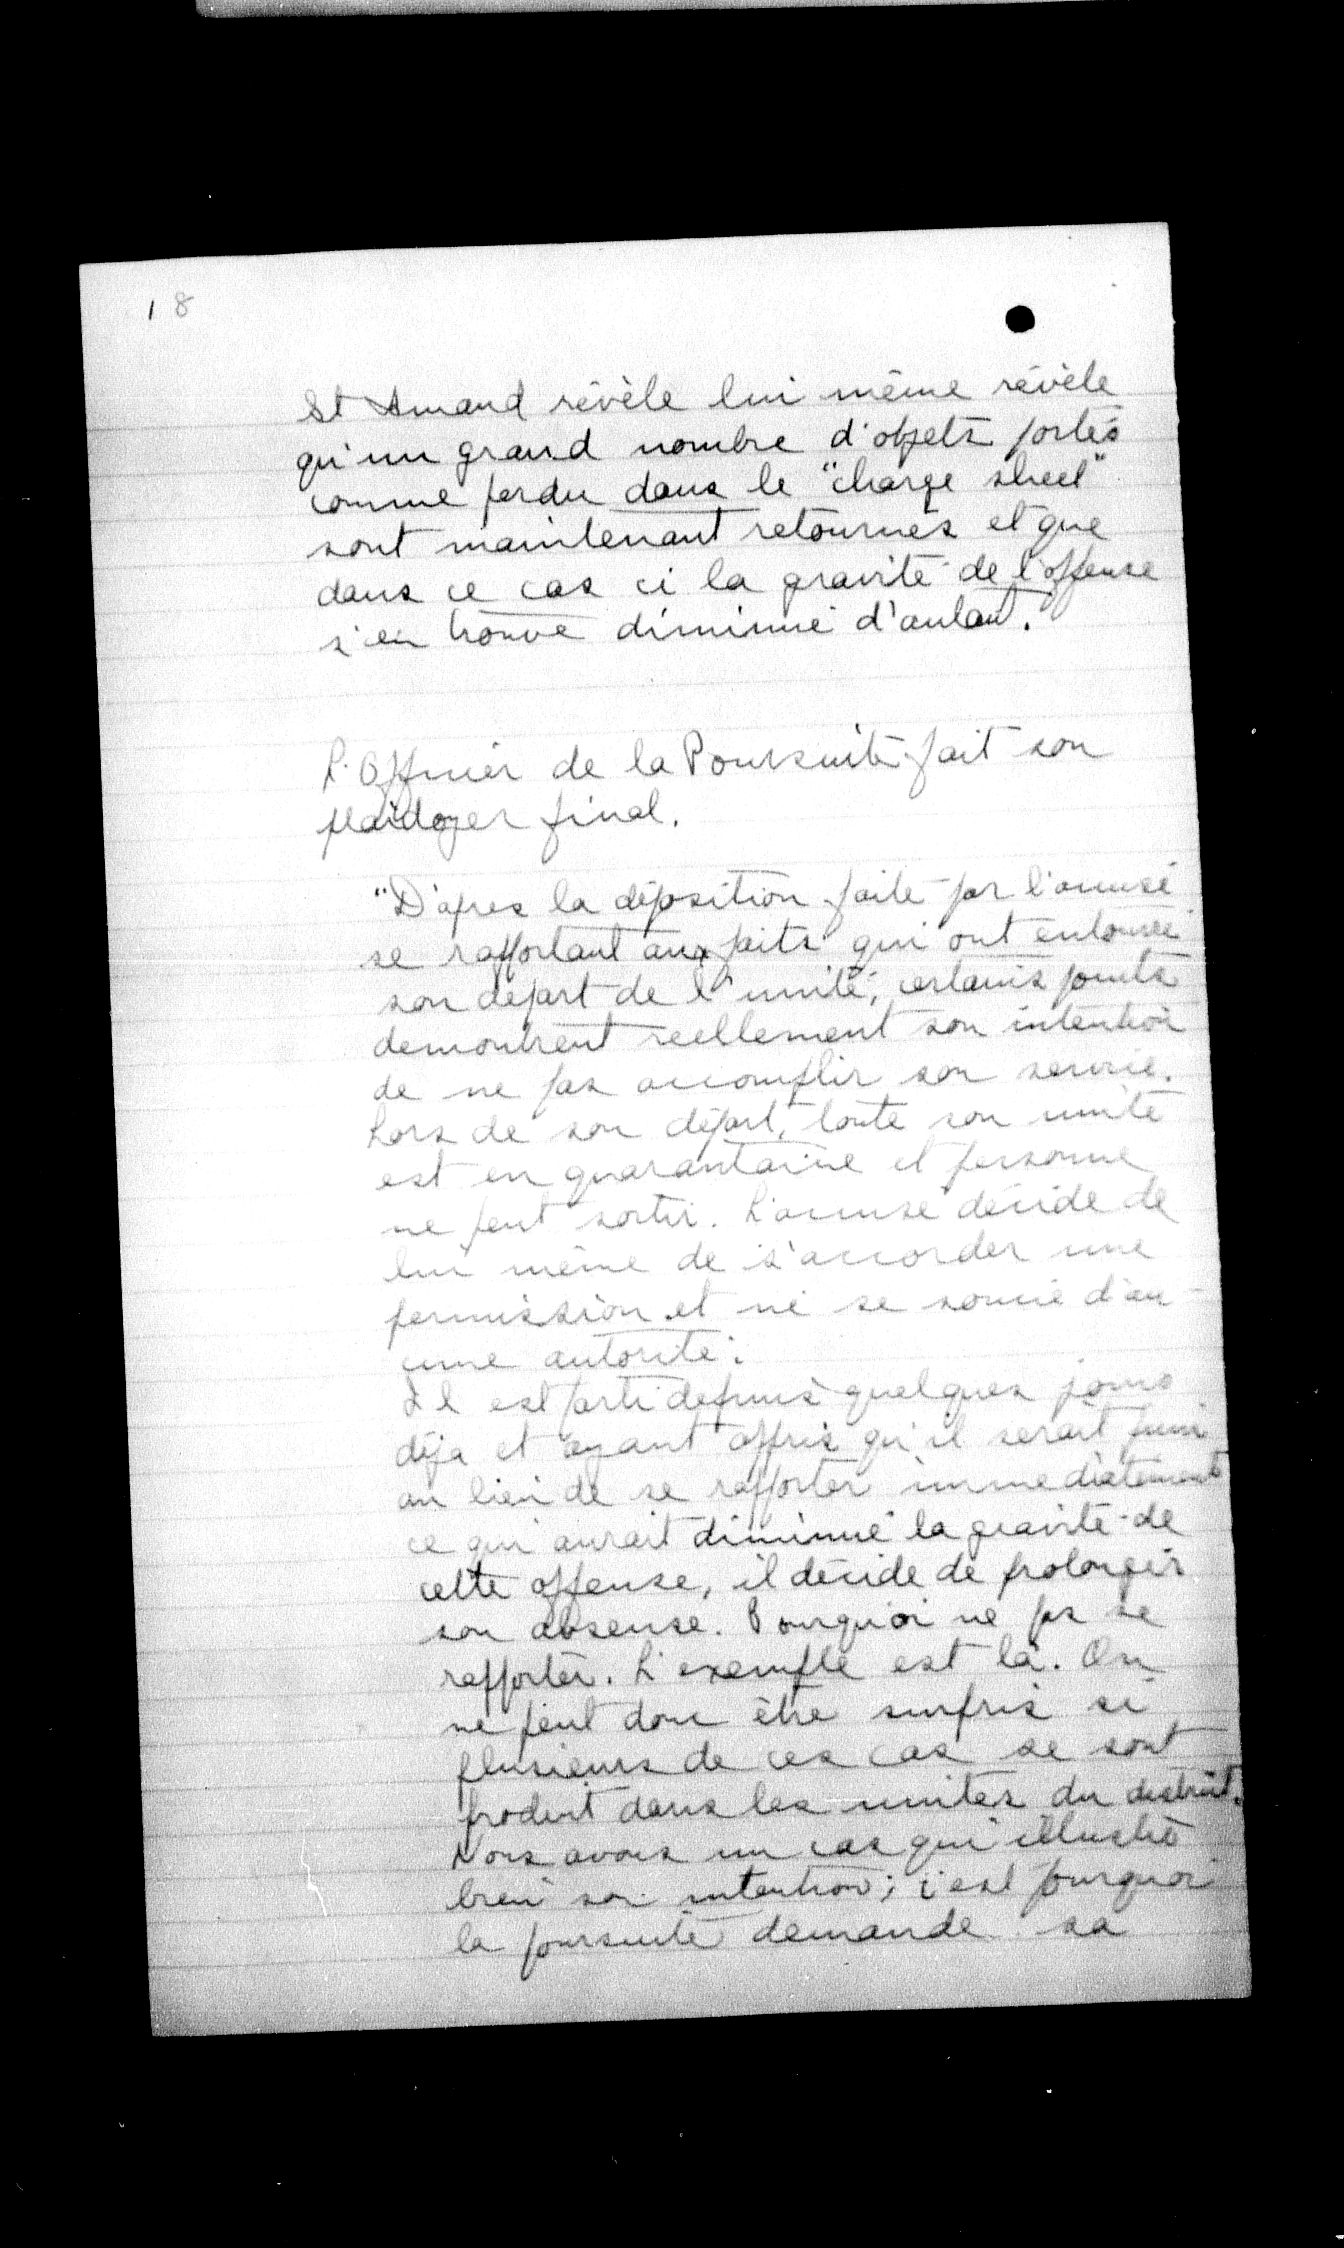 18
St Amand révèle lui même révèle
qu'un grand nombre d'objets portés
comme perdu dans le "charge sheet"
sont maintenant retournés et que
dans ce cas ci la gravité de l'offense
s'en trouve diminué d'autant.
L'Officier de la Poursuite fait son
plaidoyer final.
"D'après la déposition faite par l'accusé
se rapportant aux faits qui ont entouré
son départ de l'unité, certains points
demontrent reellement son intention
de ne pas accomplir son service.
Lors de son départ, toute son unité
est en quarantaine et personne
ne peut sortir. L'accusé décide de
lui même de s'accorder une
permission et ne se soucie d'au-
cune autorité.
Il est parti depuis quelques jours
déja et ayant appris qu'il serait puni
au lieu de se rapporter immediatement
ce qui aurait diminué la gravité de
cette offense, il décide de prolonger
son absense. Pourquoi ne pas se
rapporter. L'exemple est là. On
ne peut donc être surpris si
plusieurs de ces cas se sont
produit dans les unités du district.
Nous avons un cas qui illustre
bien son intention; c'est pourquoi
la poursuite demande sa